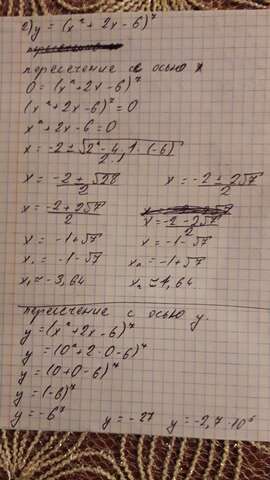 2) y = (x² + 2x - 6)⁷
пересечение с осью x
0 = (x² + 2x - 6)⁷
(x² + 2x - 6)⁷ = 0
x² + 2x - 6 = 0
x = -2 ± √2² - 4 · 1 · (-6) / 2
x = -2 ± √28 / 2   x = -2 ± 2√7 / 2
x = -2 + 2√7 / 2   x = -2 - 2√7 / 2
x = -1 + √7   x = -1 - √7
x₁ = -1 - √7   x₂ = -1 + √7
x₁ ≈ -3,64   x₂ ≈ 1,64
пересечение с осью y.
y = (x² + 2x - 6)⁷
y = (0² + 2 · 0 - 6)⁷
y = (0 + 0 - 6)⁷
y = (-6)⁷
y = -6⁷   y = -27   y = -2,7 · 10⁵